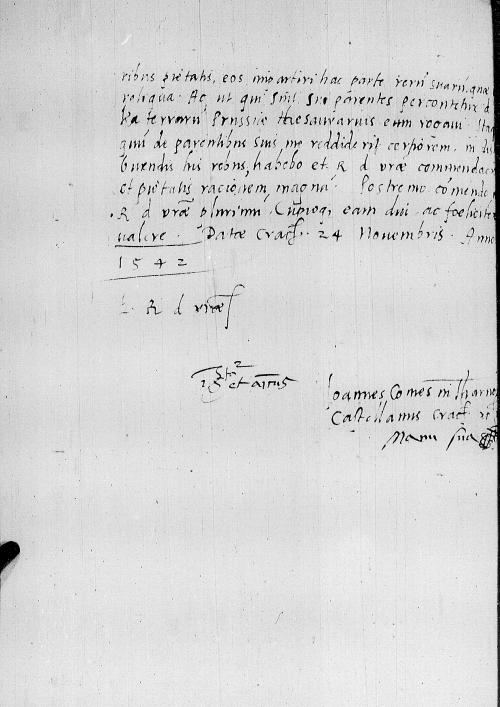 ribus pietatis, eos impartiri hac parte rerum suarum, quae
reliqua. Ac, ut qui sint sui parentes percontetur d
terrarum Prussiae thesaurarius eum rogavi. Itaq
qui de parentibus suis me reddiderit certiorem, in dis
buendis his rebus, habebo et R d vrae commendac
et pietatis racionem magnam. Postremo comendo
R d vrae plurimum. Cupioq, eam diu ac foeliciter
valere. Datae Cracf. 24 Novembris. Anno
1542
E. R d vrae
et amicus
Ioannes Comes in Tharnow
Castellanus Cracf
Manu sua